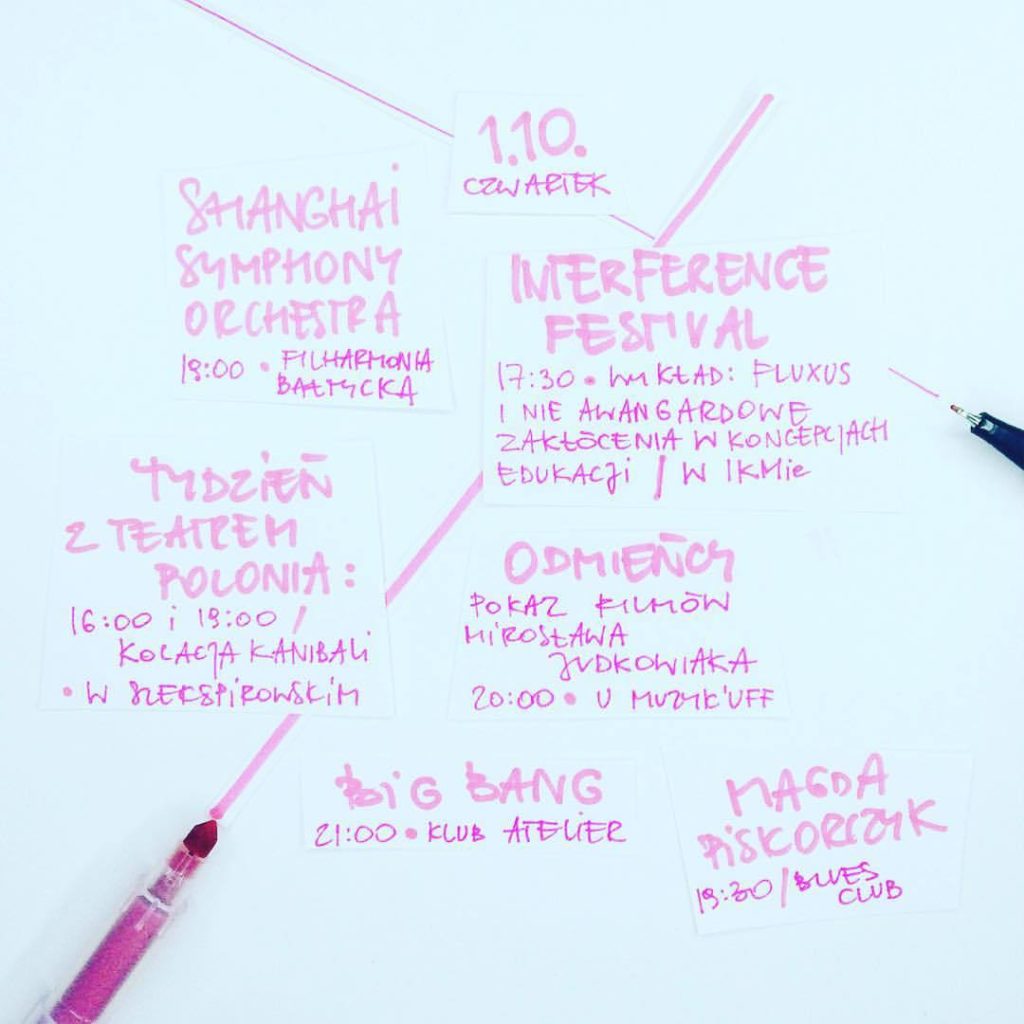 1.10.
CZWARTEK
SHANGHAI
SYMPHONY
ORCHESTRA
19:00 • FILHARMONIA
BAŁTYCKA
INTERFERENCE
FESTIVAL
17:30 • WYKŁAD: FLUXUS
I NIE AWANGARDOWE
ZAKŁÓCENIA W KONCEPCJACH
EDUKACJI / W IKMie
TYDZIEŃ
Z TEATREM
POLONIA:
16:00 i 19:00 /
KOLACJA KANIBALI
• W SZEKSPIROWSKIM
ODMIEŃCY
POKAZ FILMÓW
MIROSŁAWA
JUDKOWIAKA
20:00 • U MUZYK'UFF
BIG BANG
21:00 • KLUB ATELIER
MAGDA
PISKORCZYK
19:30 / BLUES
CLUB